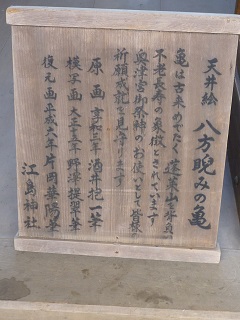 天井絵 八方睨みの亀
亀は古来めでたく蓬莱山を背負
不老長寿の象徴とされています
奥津宮御祭神のお使いとして皆様の
祈願成就を見守ります
原画 享和三年 酒井抱一筆
模写画 大正十五年 野澤提翠筆
復元画 平成六年 片岡華陽筆
江島神社